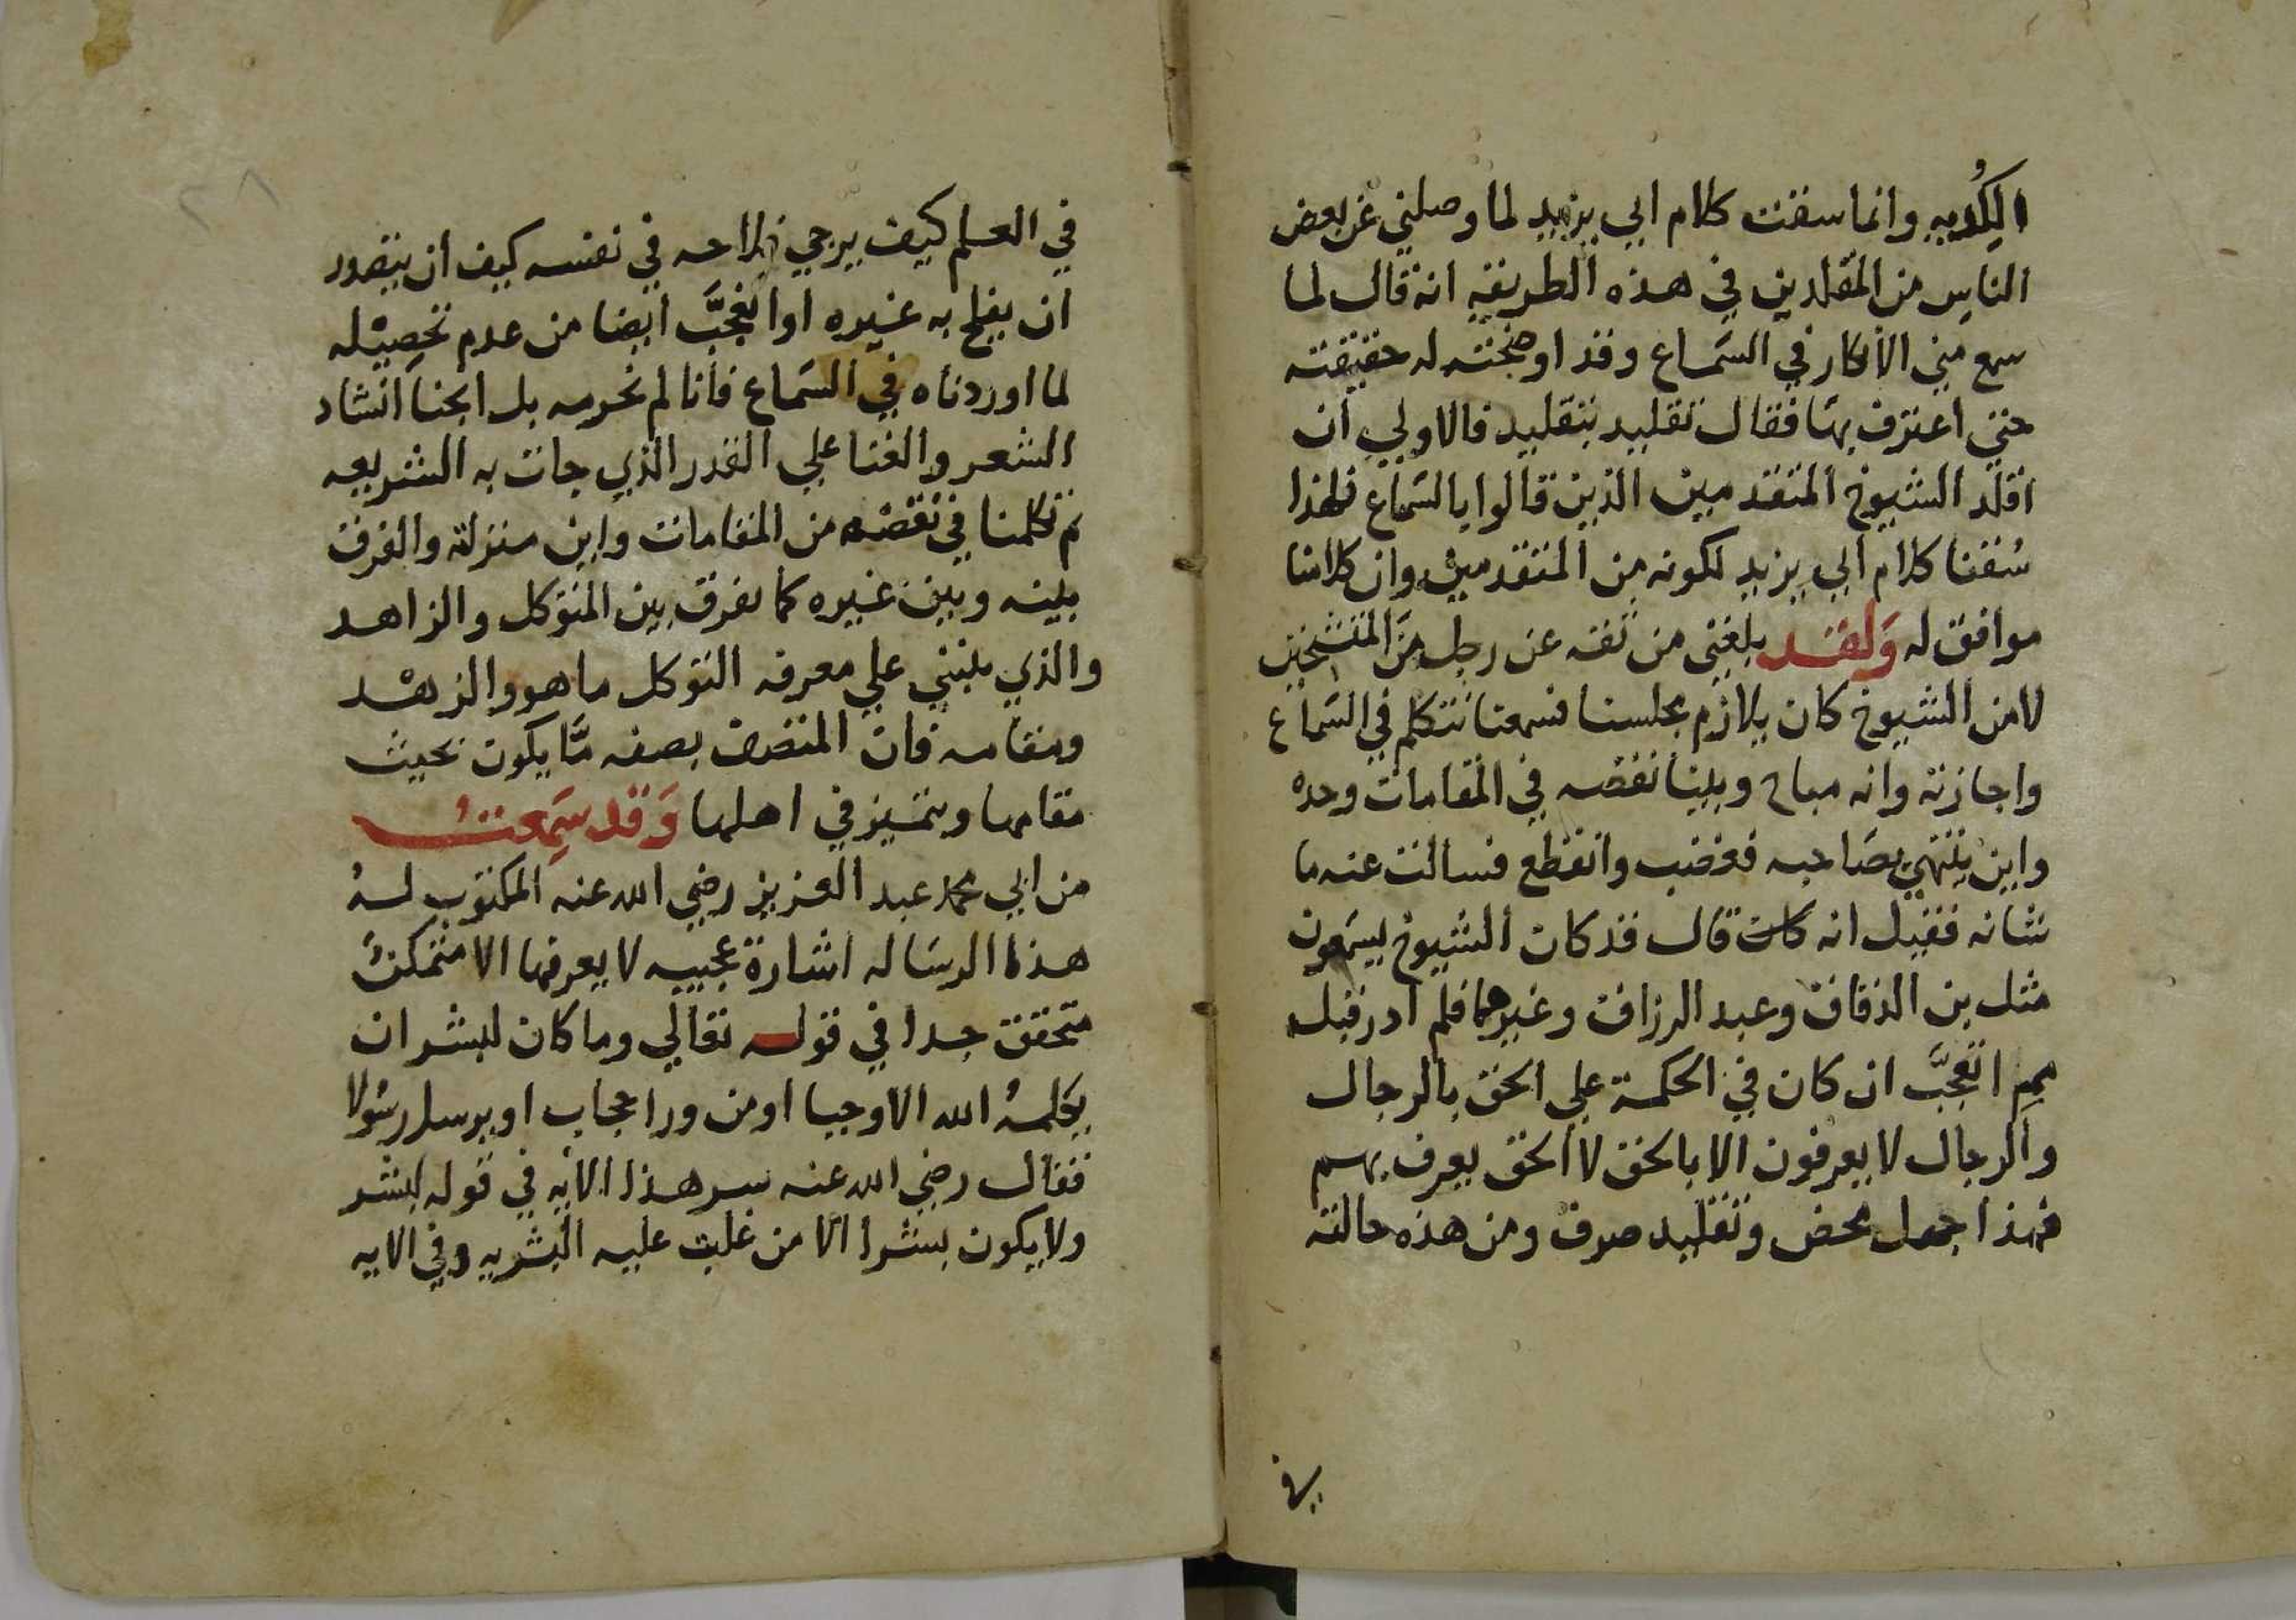 الكُدْيه وانما سقت كلام ابي يزيد لما وصلني عن بعض
الناس من المقلدين في هذه الطريقه انه قال لما
سمع مني الانكار في السَماع وقد اوضحته له حقيقته
حتي اعترف بها فقال تقليد بتقليد فالاولي ان
اقلد الشيوخ المتقدمين الذين قالوا بالسَماع فلهذا
سُقنا كلام ابي يزيد لكونه من المتقدمين وان كلامنا
موافق له وَلقد بلغني من ثقه عن رجل من المتشيخين
لا من الشيوخ كان يلازم مجلسنا فسمعنا نتكلم في السَماع
واجازته وانه مباح وبينا نقصه في المقامات وحده
واين ينتهي بصَاحبه فغضب وانقطع فسالت عنه ما
شانه فقيل انه كان قال قد كان الشيوخ يسَمعون
مثل بن الدقاق وعبد الرزاق وغيرهما فلم ادر قبل
مم اتعجَّب ان كان في الحكمة علي الحق بالرجال
والرجال لا يعرفون الا بالحق لا الحق يعرف بهم
فهذا جهل محض وتقليد صرف ومن هذه حالته
في
٢٨
في العلم كيف يرجي فلاحه في نفسه كيف ان يتصور
ان يفلح به غيره او اتعجَّب ايضا من عدم تحصيله
لما اوردناه في السَماع فانا لم نحرمه بل ابحنا انشاد
الشعر والغنا علي القدر الذي جات به الشريعه
ثم تكلمنا في نقصه من المقامات واين منزلته والفرق
بينه وبين غيره كما نفرق بين المتوكل والزاهد
والذي ينبني علي معرفه التوكل ما هو والزهد
ومقامه فان المتصف بصفه مّا يكون بحيث
مقامها ويتميز في اهلها وَقد سَمِعتُ
من ابي محمد عبد العزيز رضي الله عنه المكتوب لهُ
هذا الرسَاله اشارة عجيبه لا يعرفها الا متمكن
متحقق جدا في قوله تعالي وما كان لبشر ان
يكلمهُ الله الا وحيا او من ورا حجاب او يرسل رسُولا
فقال رضي الله عنه سر هذا الايه في قوله لبشر
ولا يكون بشرا الا من غلبت عليه البشريه وفي الايه